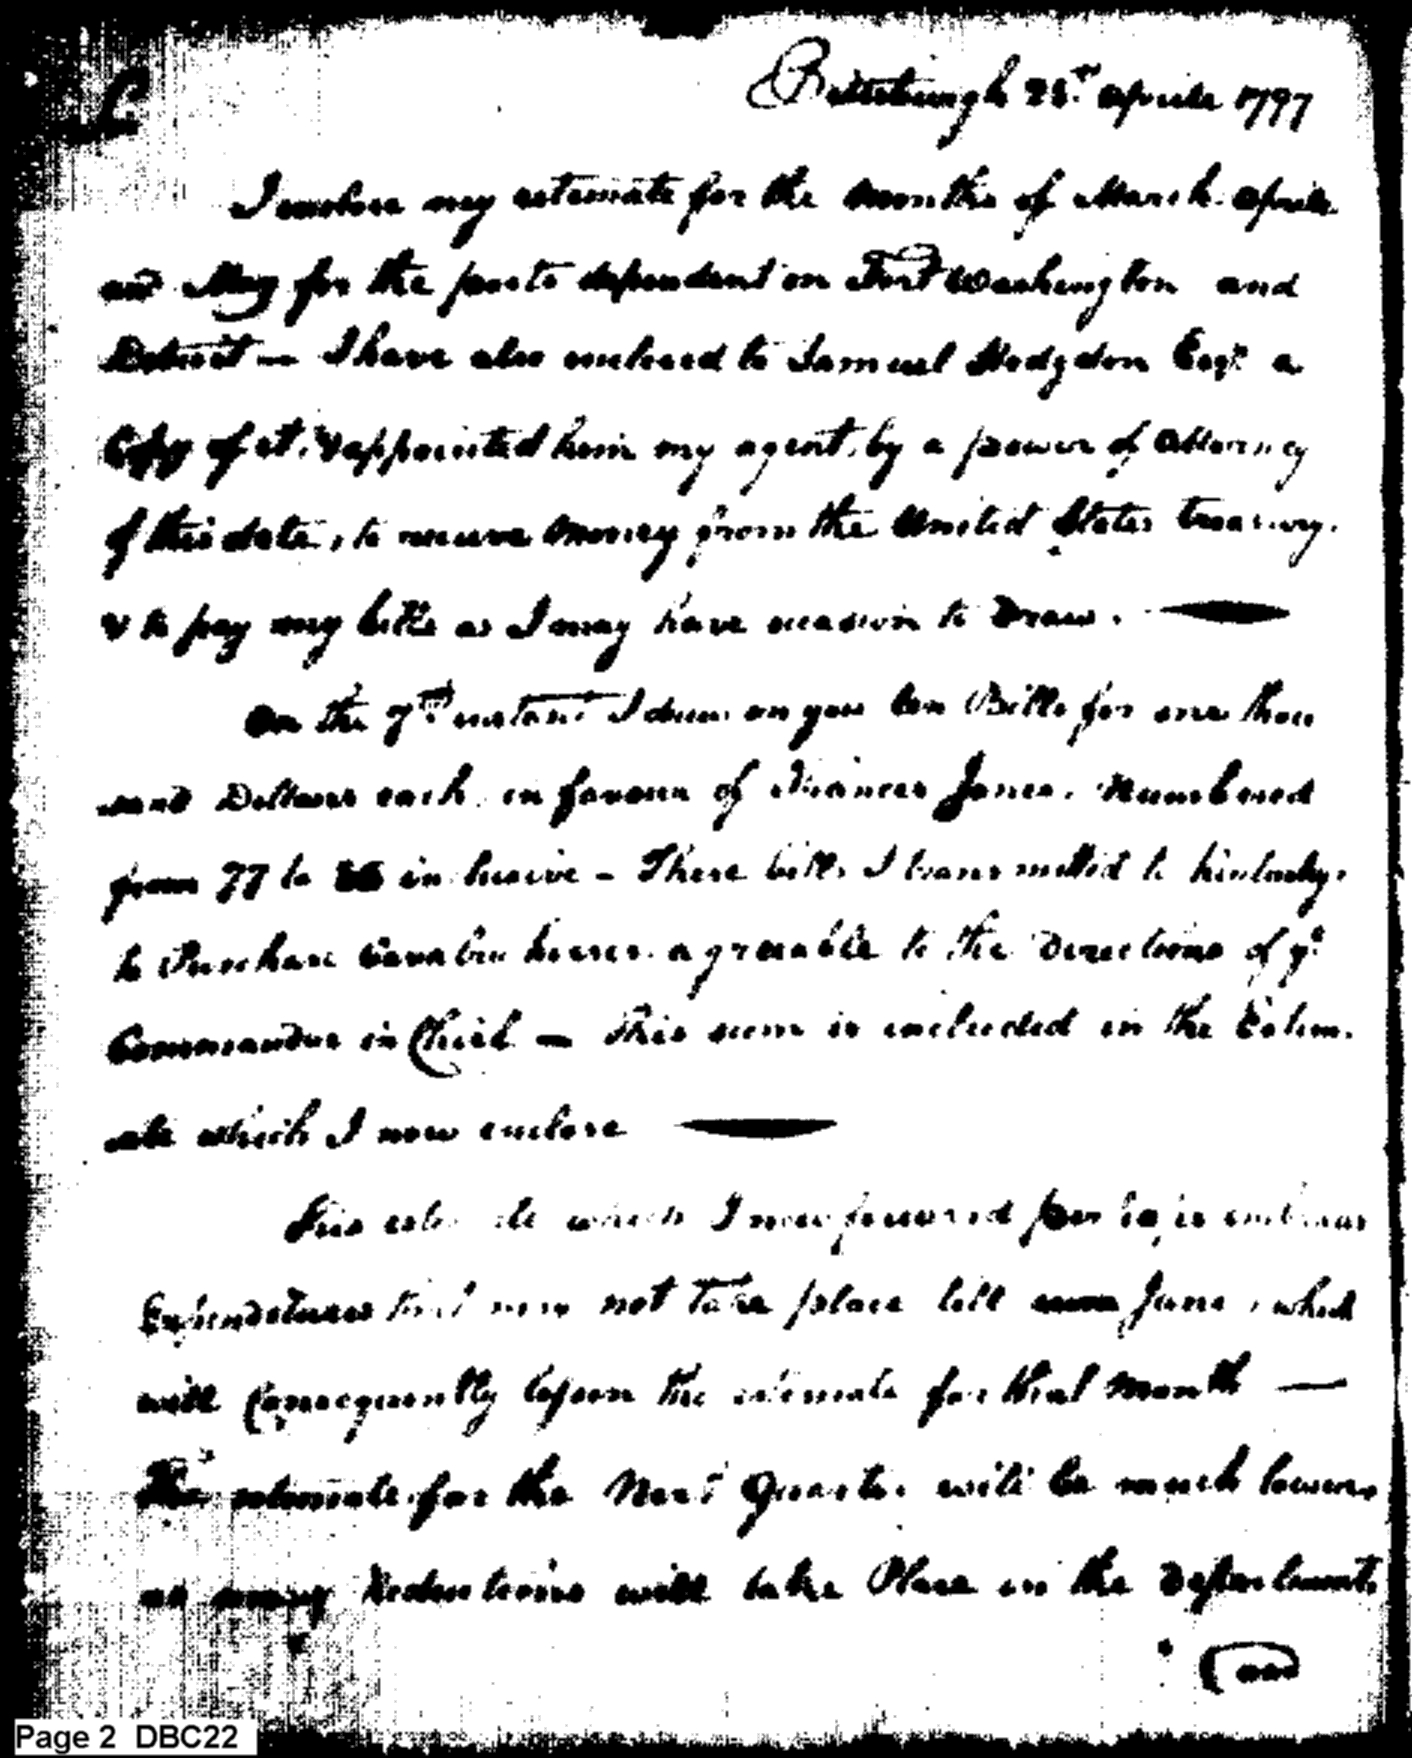 Pittsburgh 21st Aprile 1797
I enclose my estimate for the months of March Aprile
and May for the posts dependent on Fort Washington and
Detroit — I have also enclosed to Samuel Hodgdon Esqr. a
Copy of it, & appointed him my agent, by a power of Attorney
of this date, to receive money from the United States treasury.
& to pay my bills as I may have occasion to Draw.
On the 7th instant I drew on you ten Bills for one thou
sand Dollars each in favour of Frances Jones. Numbered
from 77 to 86 inclusive – These bills I transmitted to Kentucky,
to Purchase horses agreeable to the Directions of ye
Commander in Chief — This sum is included in the Estim.
ate which I now enclose
This estimate which I now forward embraces
Expenditures that will not take place till June, which
will Consequently the estimate for that Month —
The estimate for the Next Quarter will be much lower,
as many Reductions will take Place in the Departments
(and
Page 2 DBC22